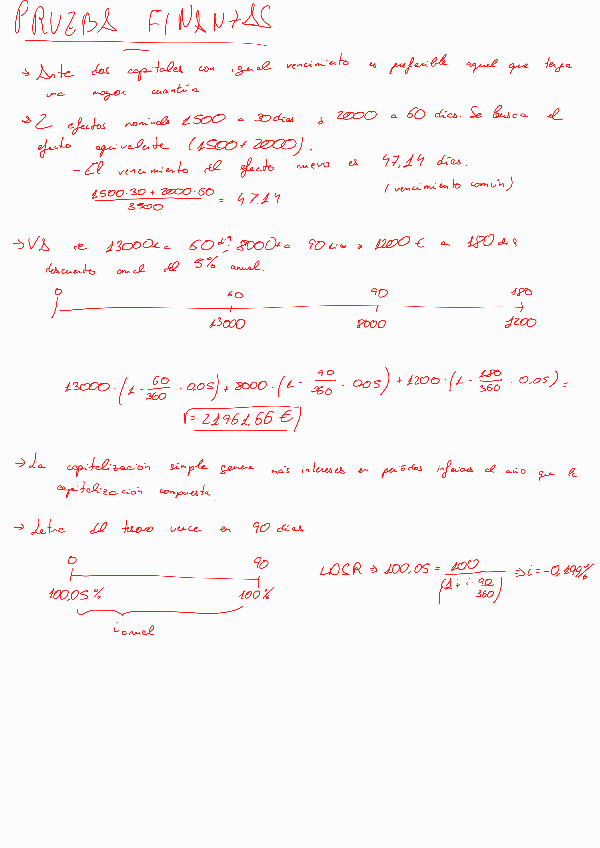 PRUEBA FINANZAS
→ Ante dos capitales con igual vencimiento es preferible aquel que tenga
una mayor cuantía
→ 2 efectos nominales 1500 a 30 días y 2000 a 60 días. Se busca el
efecto equivalente (1500+2000).
- El vencimiento del efecto nuevo es 47,14 días.
(1500·30 + 2000·60)/3500 = 47,14 (vencimiento común)
→ VA de 13000€ a 60 días, 8000€ a 90 días y 1200€ a 180 días
descuento anual del 5% anual.
0 60 90 180
13000 8000 1200
13000·(1 - 60/360 · 0,05) + 8000·(1 - 90/360 · 0,05) + 1200·(1 - 180/360 · 0,05) =
= 21961,66 €
→ La capitalización simple genera más intereses en periodos inferiores al año que la
capitalización compuesta.
→ Letra del tesoro vence en 90 días
0 90
100,05% 100%
i anual
LDSR ⇒ 100,05 = 100/(1 + i · 90/360) ⇒ i = -0,199%